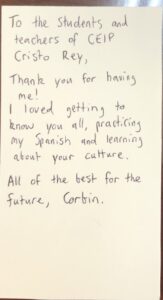 To the Students and
teachers of CEIP
Cristo Rey,
Thank you for having
me!
I loved getting to
know you all, practicing
my Spanish and learning
about your culture.
All of the best for the
future, Corbin.